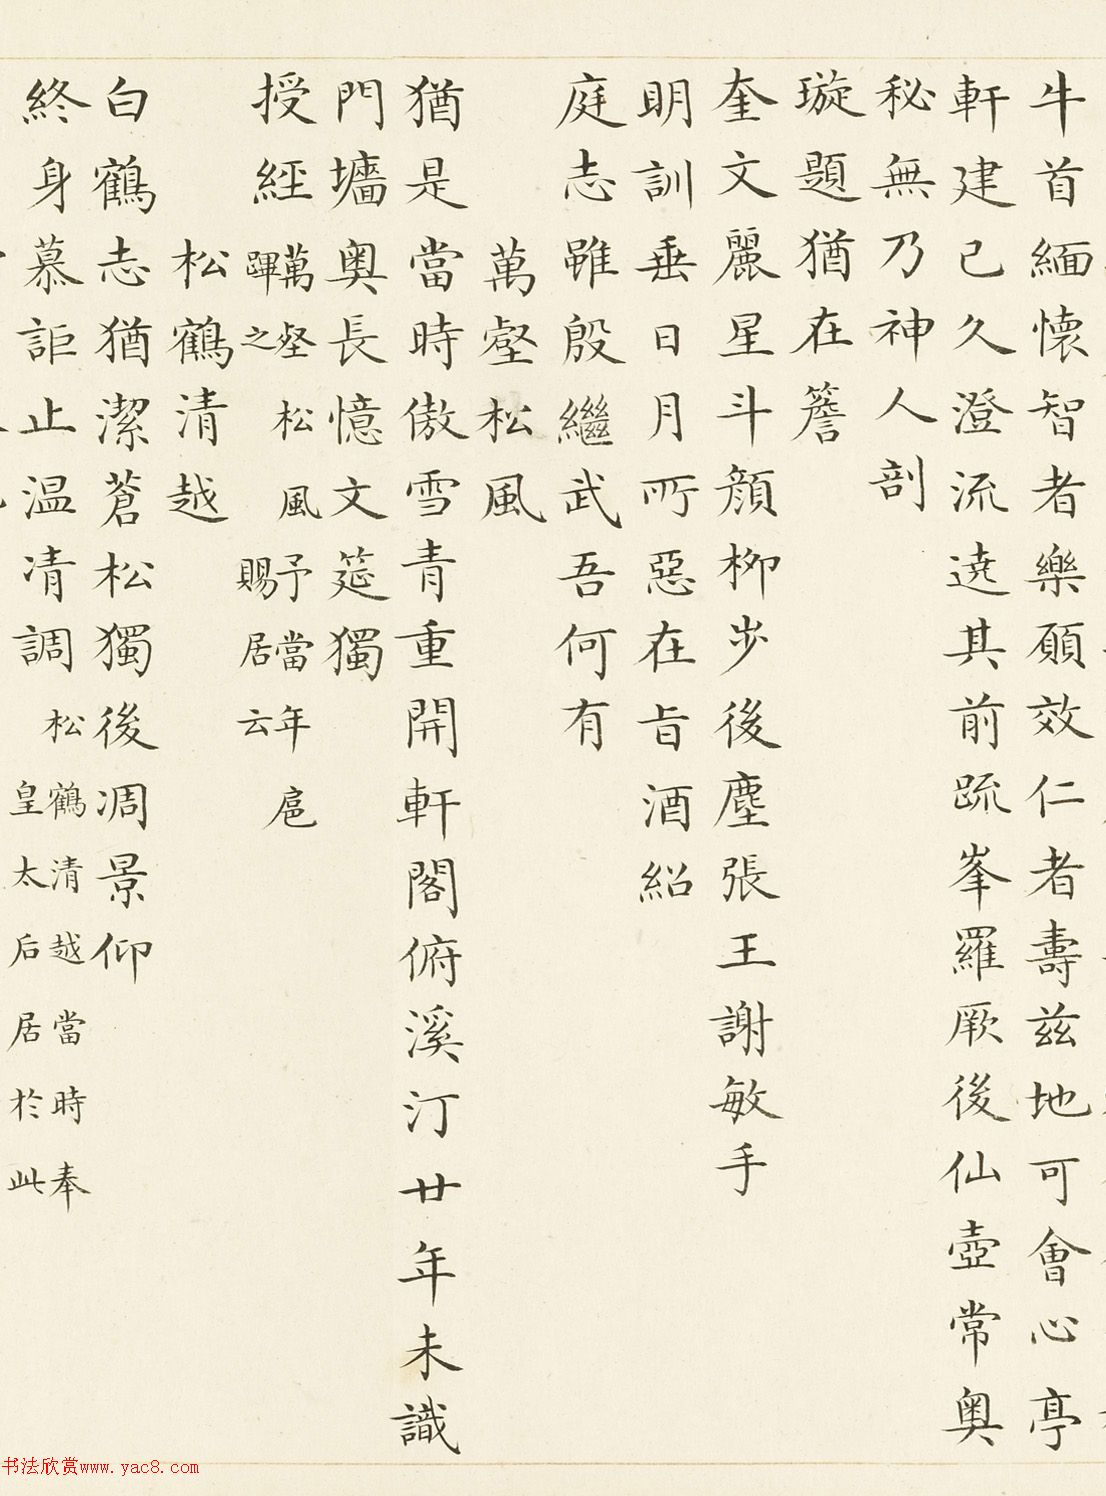 牛首緬懷智者樂願效仁者壽茲地可會心亭
軒建已久澄流遶其前疏峯羅厥後仙壺常奥
秘無乃神人剖
璇題猶在簷
奎文麗星斗顏柳步後塵張王謝敏手
明訓垂日月所惡在旨酒紹
庭志雖殷繼武吾何有
萬壑松風
猶是當時傲雪青重開軒閣俯溪汀廿年未識
門墻奥長憶文筵獨
授經
萬壑松風予當年扈
蹕之賜居云
松鶴清越
白鶴志猶潔蒼松獨後凋景仰
終身慕詎止温凊調
松鶴清越當時奉
皇太后居於此
书法欣赏www.yac8.com